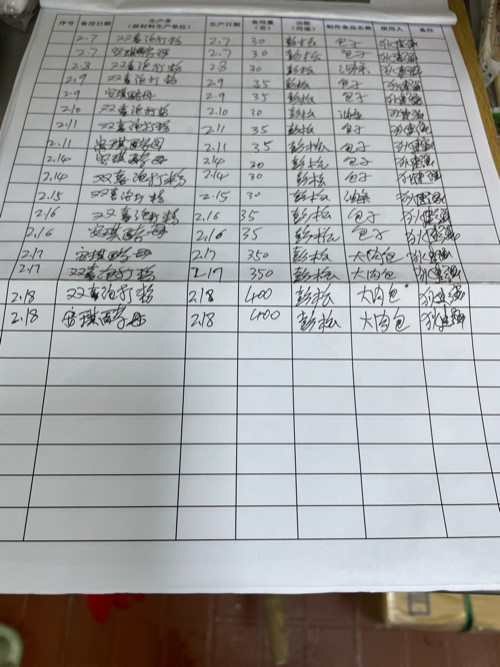 序号 食用日期 生产者（原材料生产单位） 生产日期 食用量（克） 功能（用途） 制作食品名称 使用人 备注
2.7 双喜泡打粉 2.7 30 彭松 包子
2.7 安琪酵母 2.7 30 彭松 包子
2.8 双喜泡打粉 2.8 30 彭松 油条
2.9 双喜泡打粉 2.9 35 彭松 包子
2.9 安琪酵母 2.9 35 彭松 包子
2.10 双喜泡打粉 2.10 30 彭松 油条
2.11 双喜泡打粉 2.11 35 彭松 包子
2.11 安琪酵母 2.11 35 彭松 包子
2.14 安琪酵母 2.14 30 彭松 包子
2.14 双喜泡打粉 2.14 30 彭松 包子
2.15 双喜泡打粉 2.15 30 彭松 油条
2.16 双喜泡打粉 2.16 35 彭松 包子
2.16 安琪酵母 2.16 35 彭松 包子
2.17 安琪酵母 2.17 350 彭松 大肉包
2.17 双喜泡打粉 2.17 350 彭松 大肉包
2.18 双喜泡打粉 2.18 400 彭松 大肉包
2.18 安琪酵母 2.18 400 彭松 大肉包